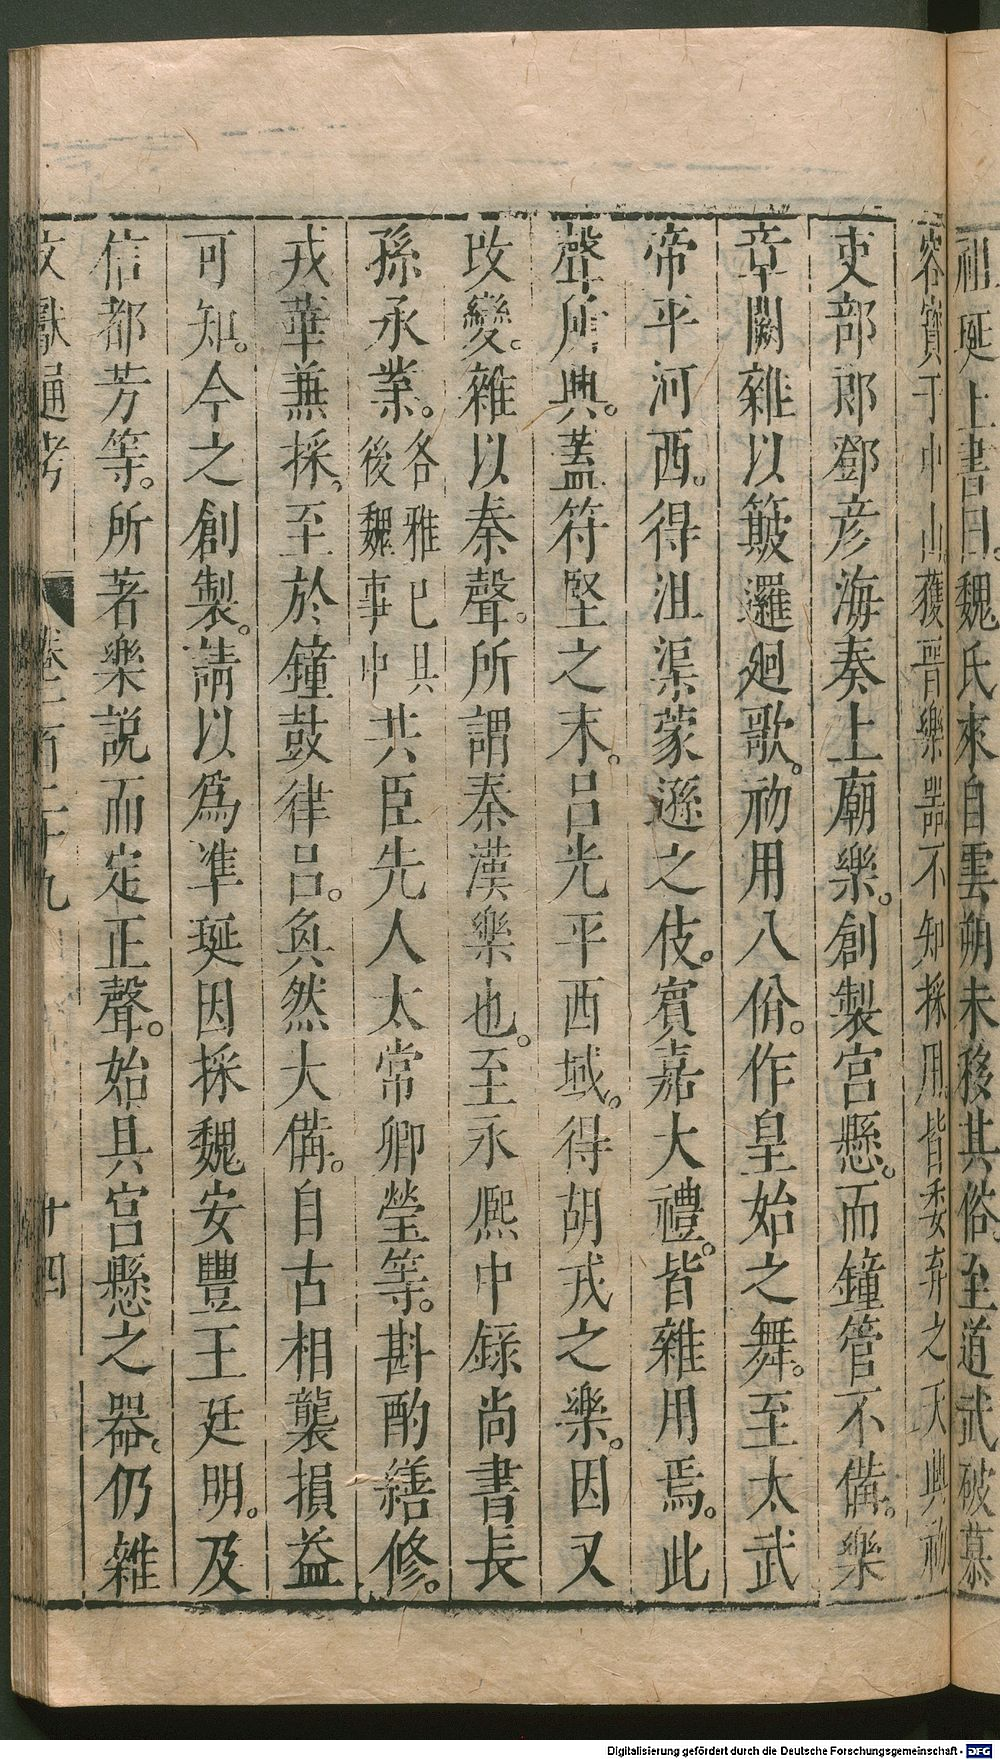 祖珽上書曰。魏氏來自雲朔未移其俗。至道武破慕
容寶于中山獲晉樂器不知採用皆委弃之天興初
吏部郎鄧彦海奏上廟樂。創製宮懸。而鐘管不備。樂
章闕雜以簸邏廻歌。初用八佾。作皇始之舞。至太武
帝平河西。得沮渠蒙遜之伎。賓嘉大禮。皆雜用焉。此
聲所興。蓋符堅之末。呂光平西域。得胡戎之樂。因又
攺變。雜以秦聲。所謂秦漢樂也。至永熈中錄尚書長
孫承業。各雅已具後魏事中共臣先人太常卿瑩等。斟酌繕修。
戎華兼採、至於鐘鼓律呂。奐然大備。自古相襲損益
可知。今之創製。請以爲凖珽因採魏安豐王廷明。及
信都芳等。所著樂説而定正聲。始具宮懸之器。仍雜
文獻通考 卷一百二十九 十四
Digitalisierung gefördert durch die Deutsche Forschungsgemeinschaft - DFG